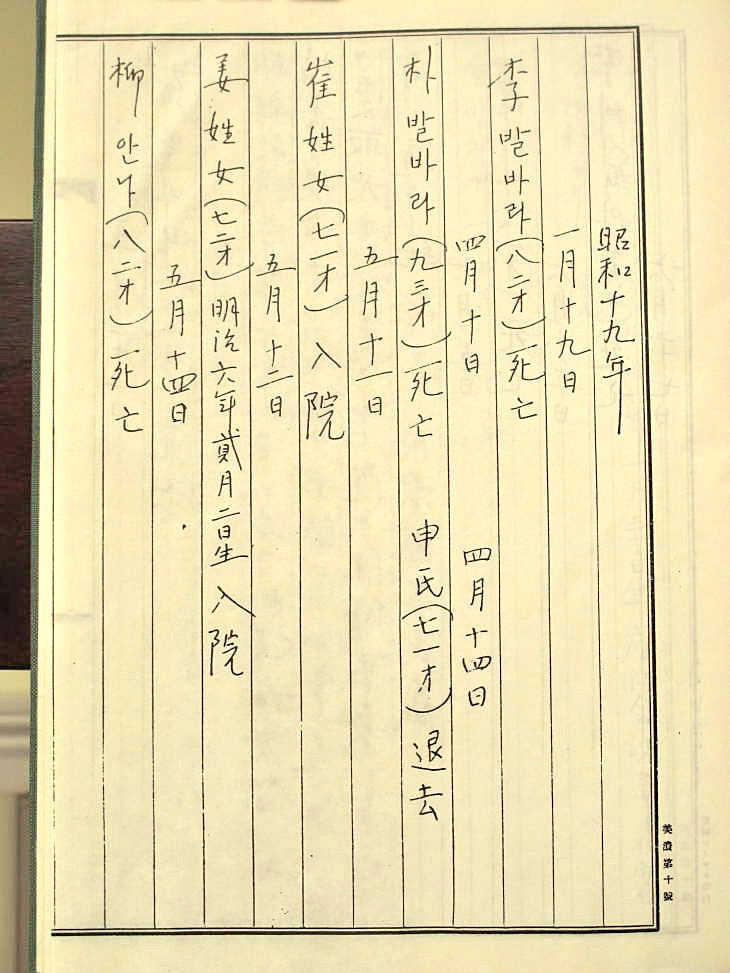 昭和十九年
一月十九日
李발바라(八二才)死亡
四月十日 四月十四日
朴발바라(九三才)死亡 申氏(七一才)退去
五月十一日
崔姓女(七一才)入院
五月十二日
姜姓女(七二才)明治六年貳月二日生入院
五月十四日
柳안나(八二才)死亡
第十號